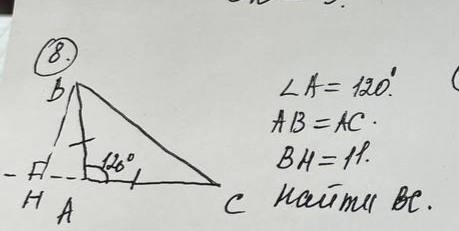 8.
B
120°
H A C
∠A = 120°.
AB = AC.
BH = 11.
Найти BC.